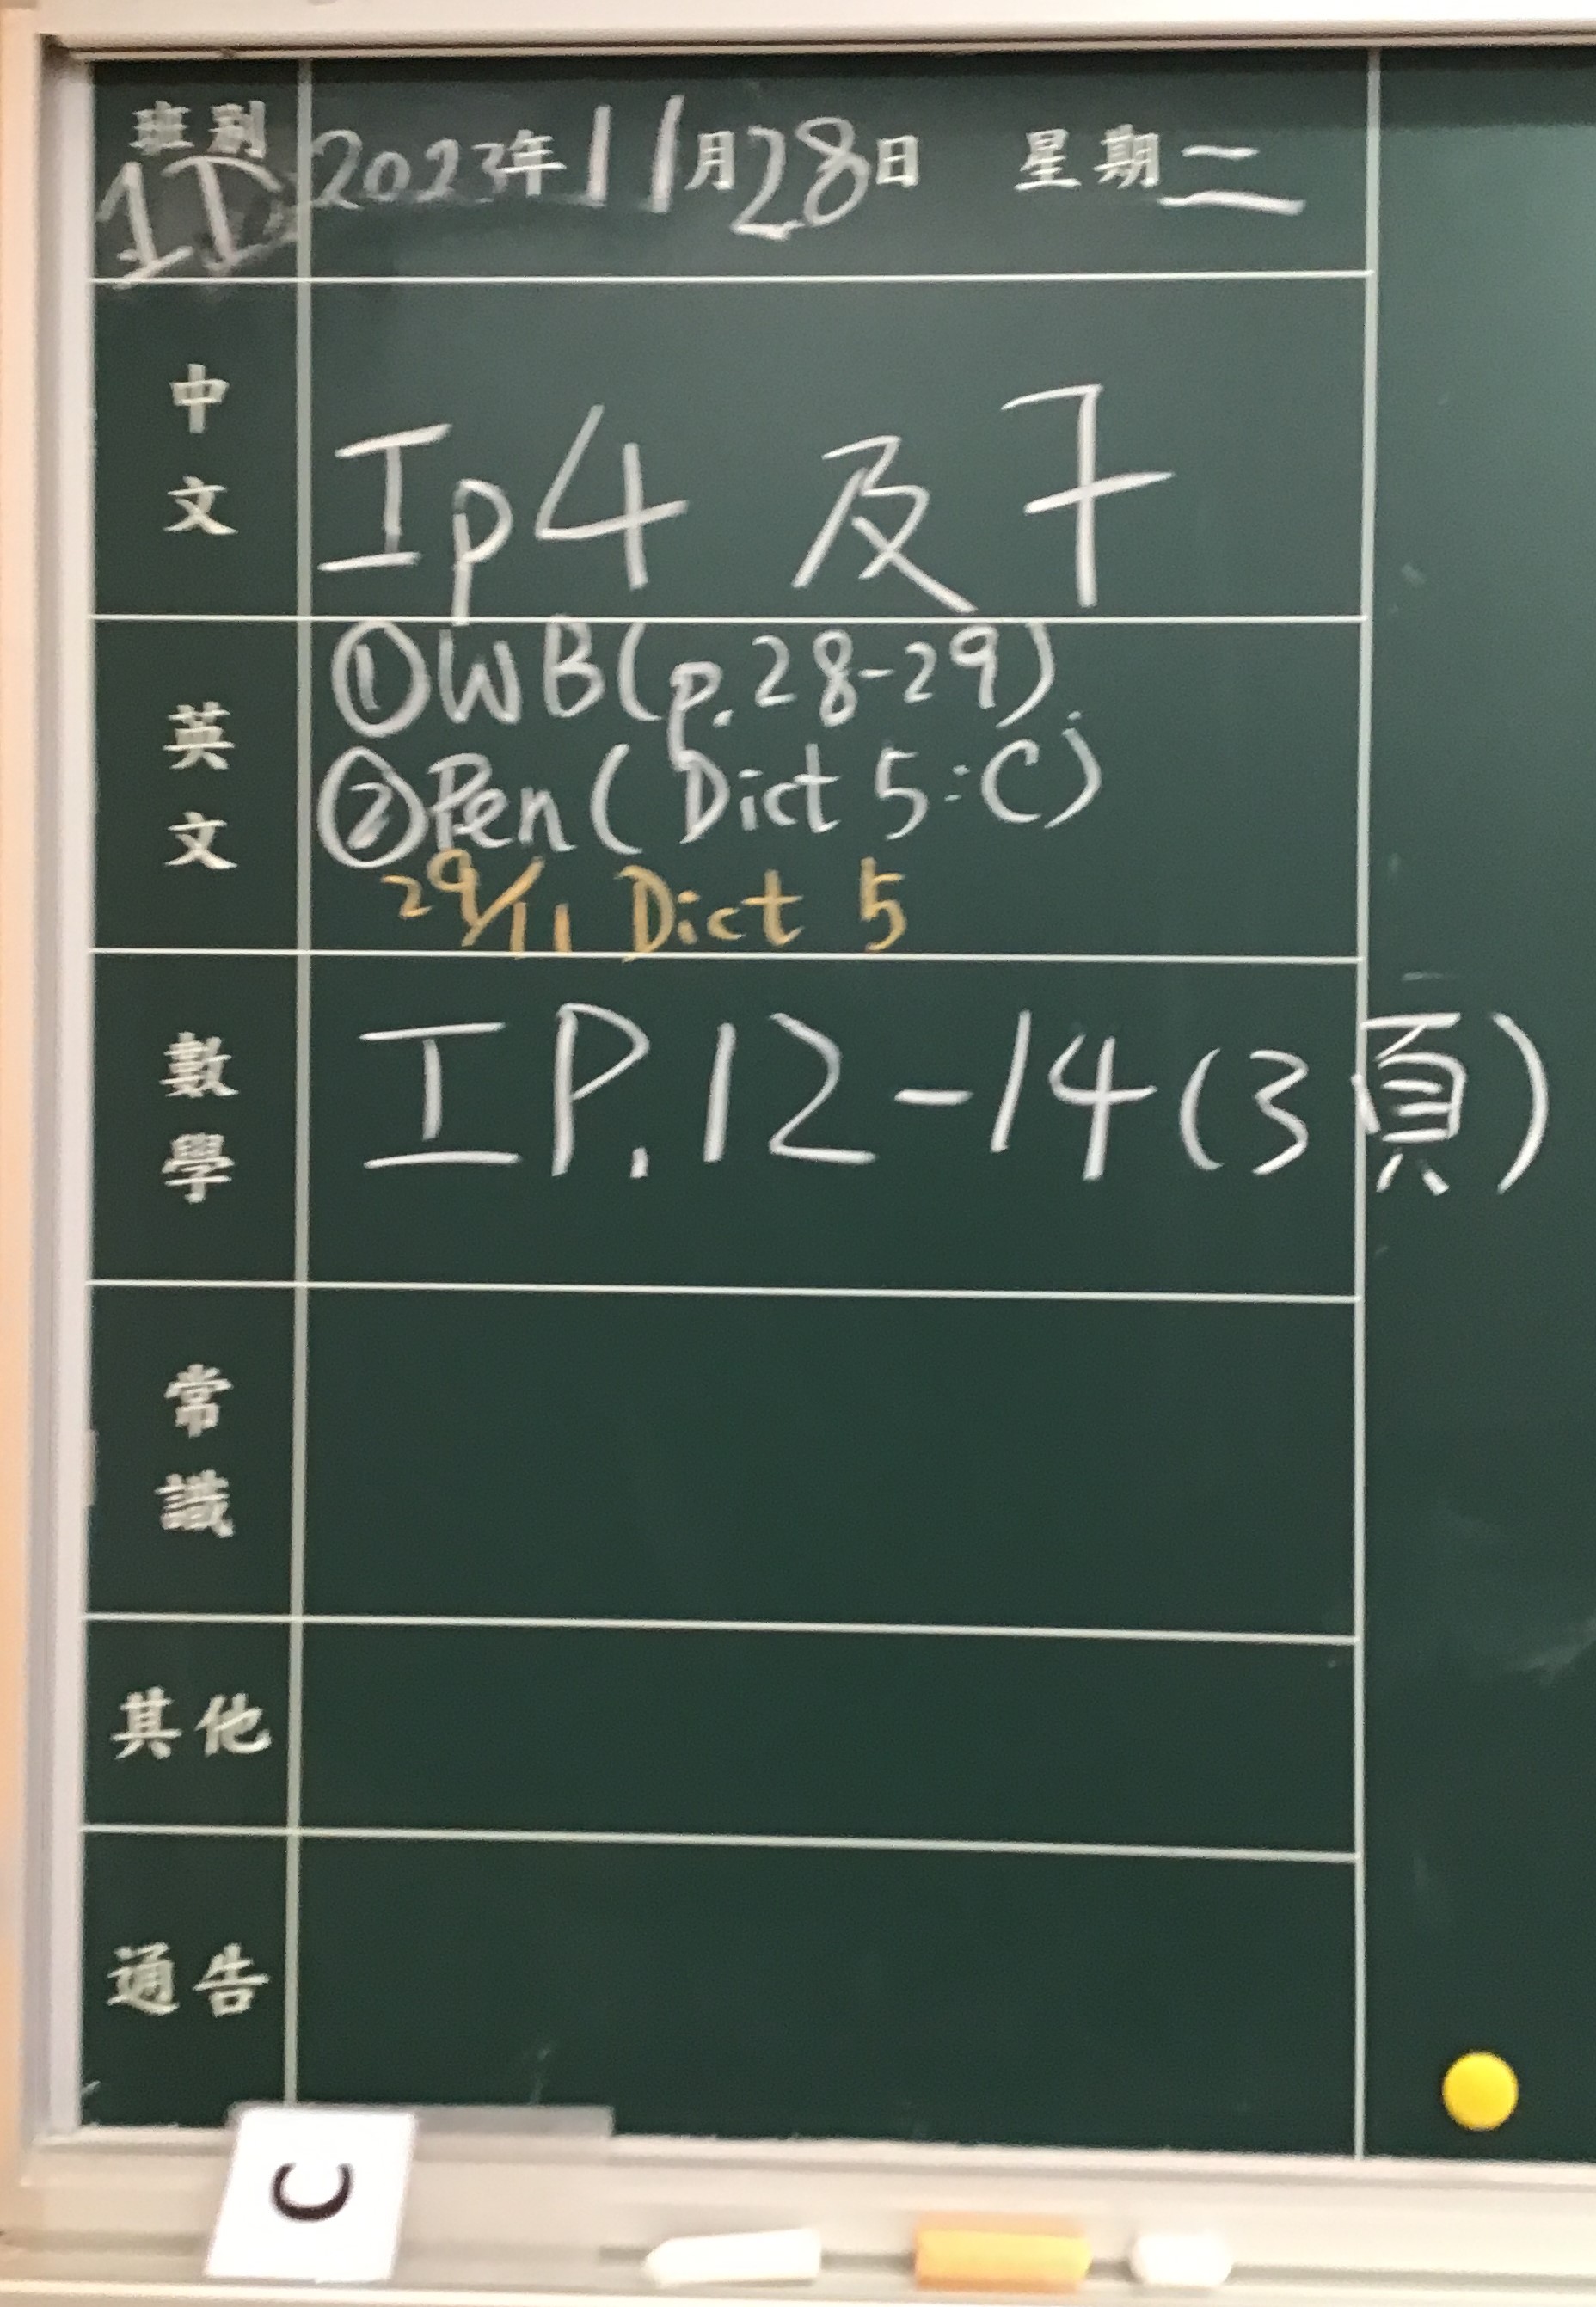 班別 2023年11月28日 星期二
1D
中文
Ip4 及 7
英文
①WB(p.28-29)
②Pen(Dict 5:C)
29/11 Dict 5
數學
I P.12-14(3頁)
常識
其他
通告
C